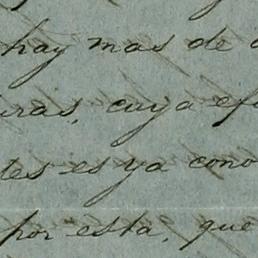 hay mas de
uras, cuya efi
tes es ya cono
por esta, que